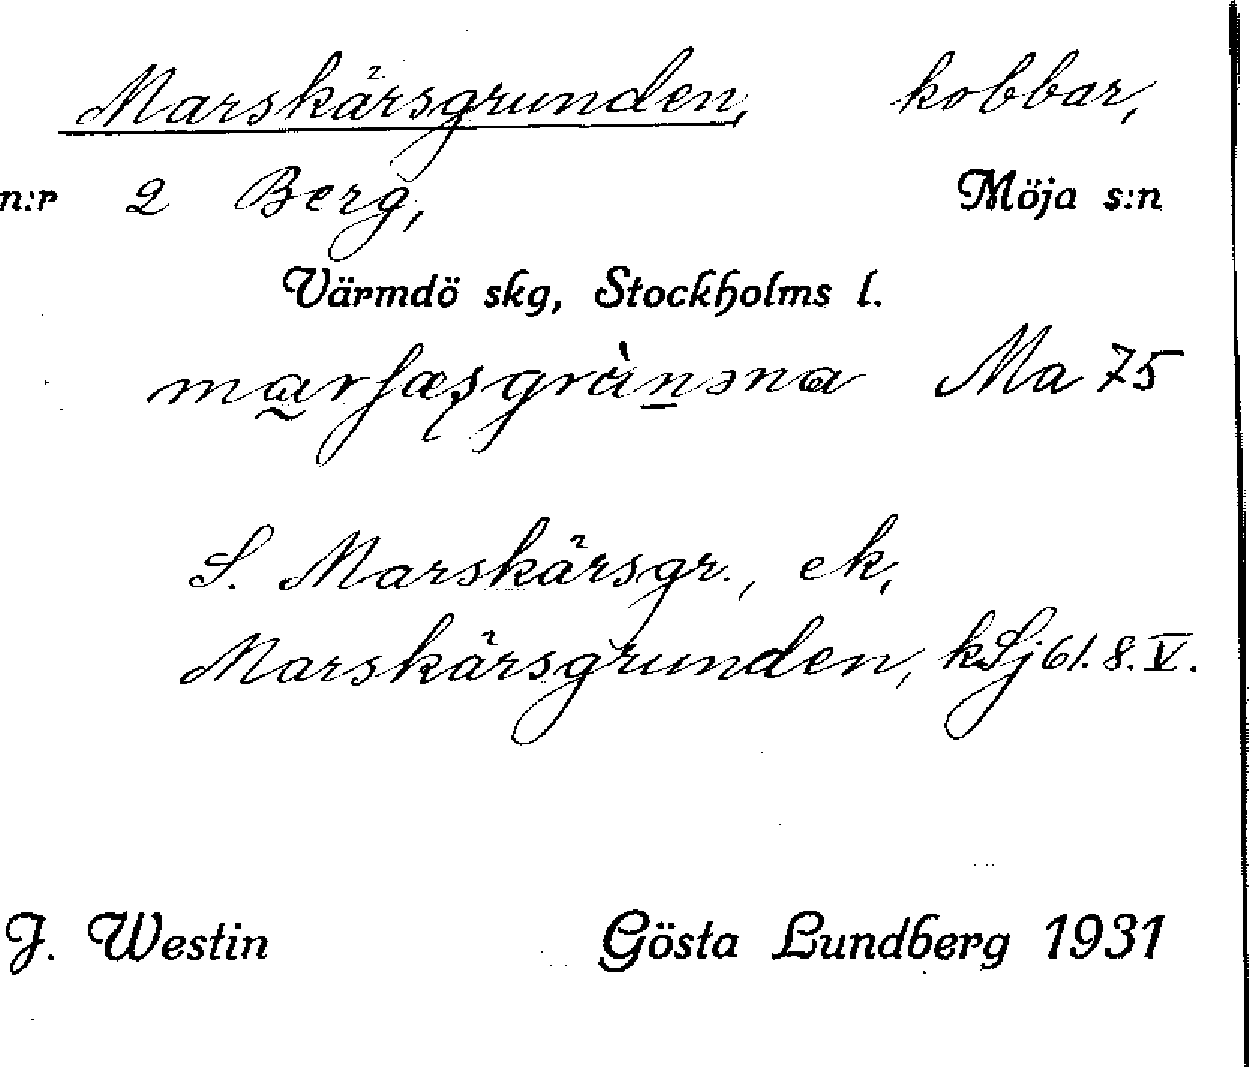 Marskärsgrunden, kobbar,
n:r 2 Berg, Möja s:n
Värmdö skg, Stockholms l.
Ma 75
S. Marskärsgr., ek,
Marskärsgrunden, kSj 61. 8. V.
J. Westin Gösta Lundberg 1931